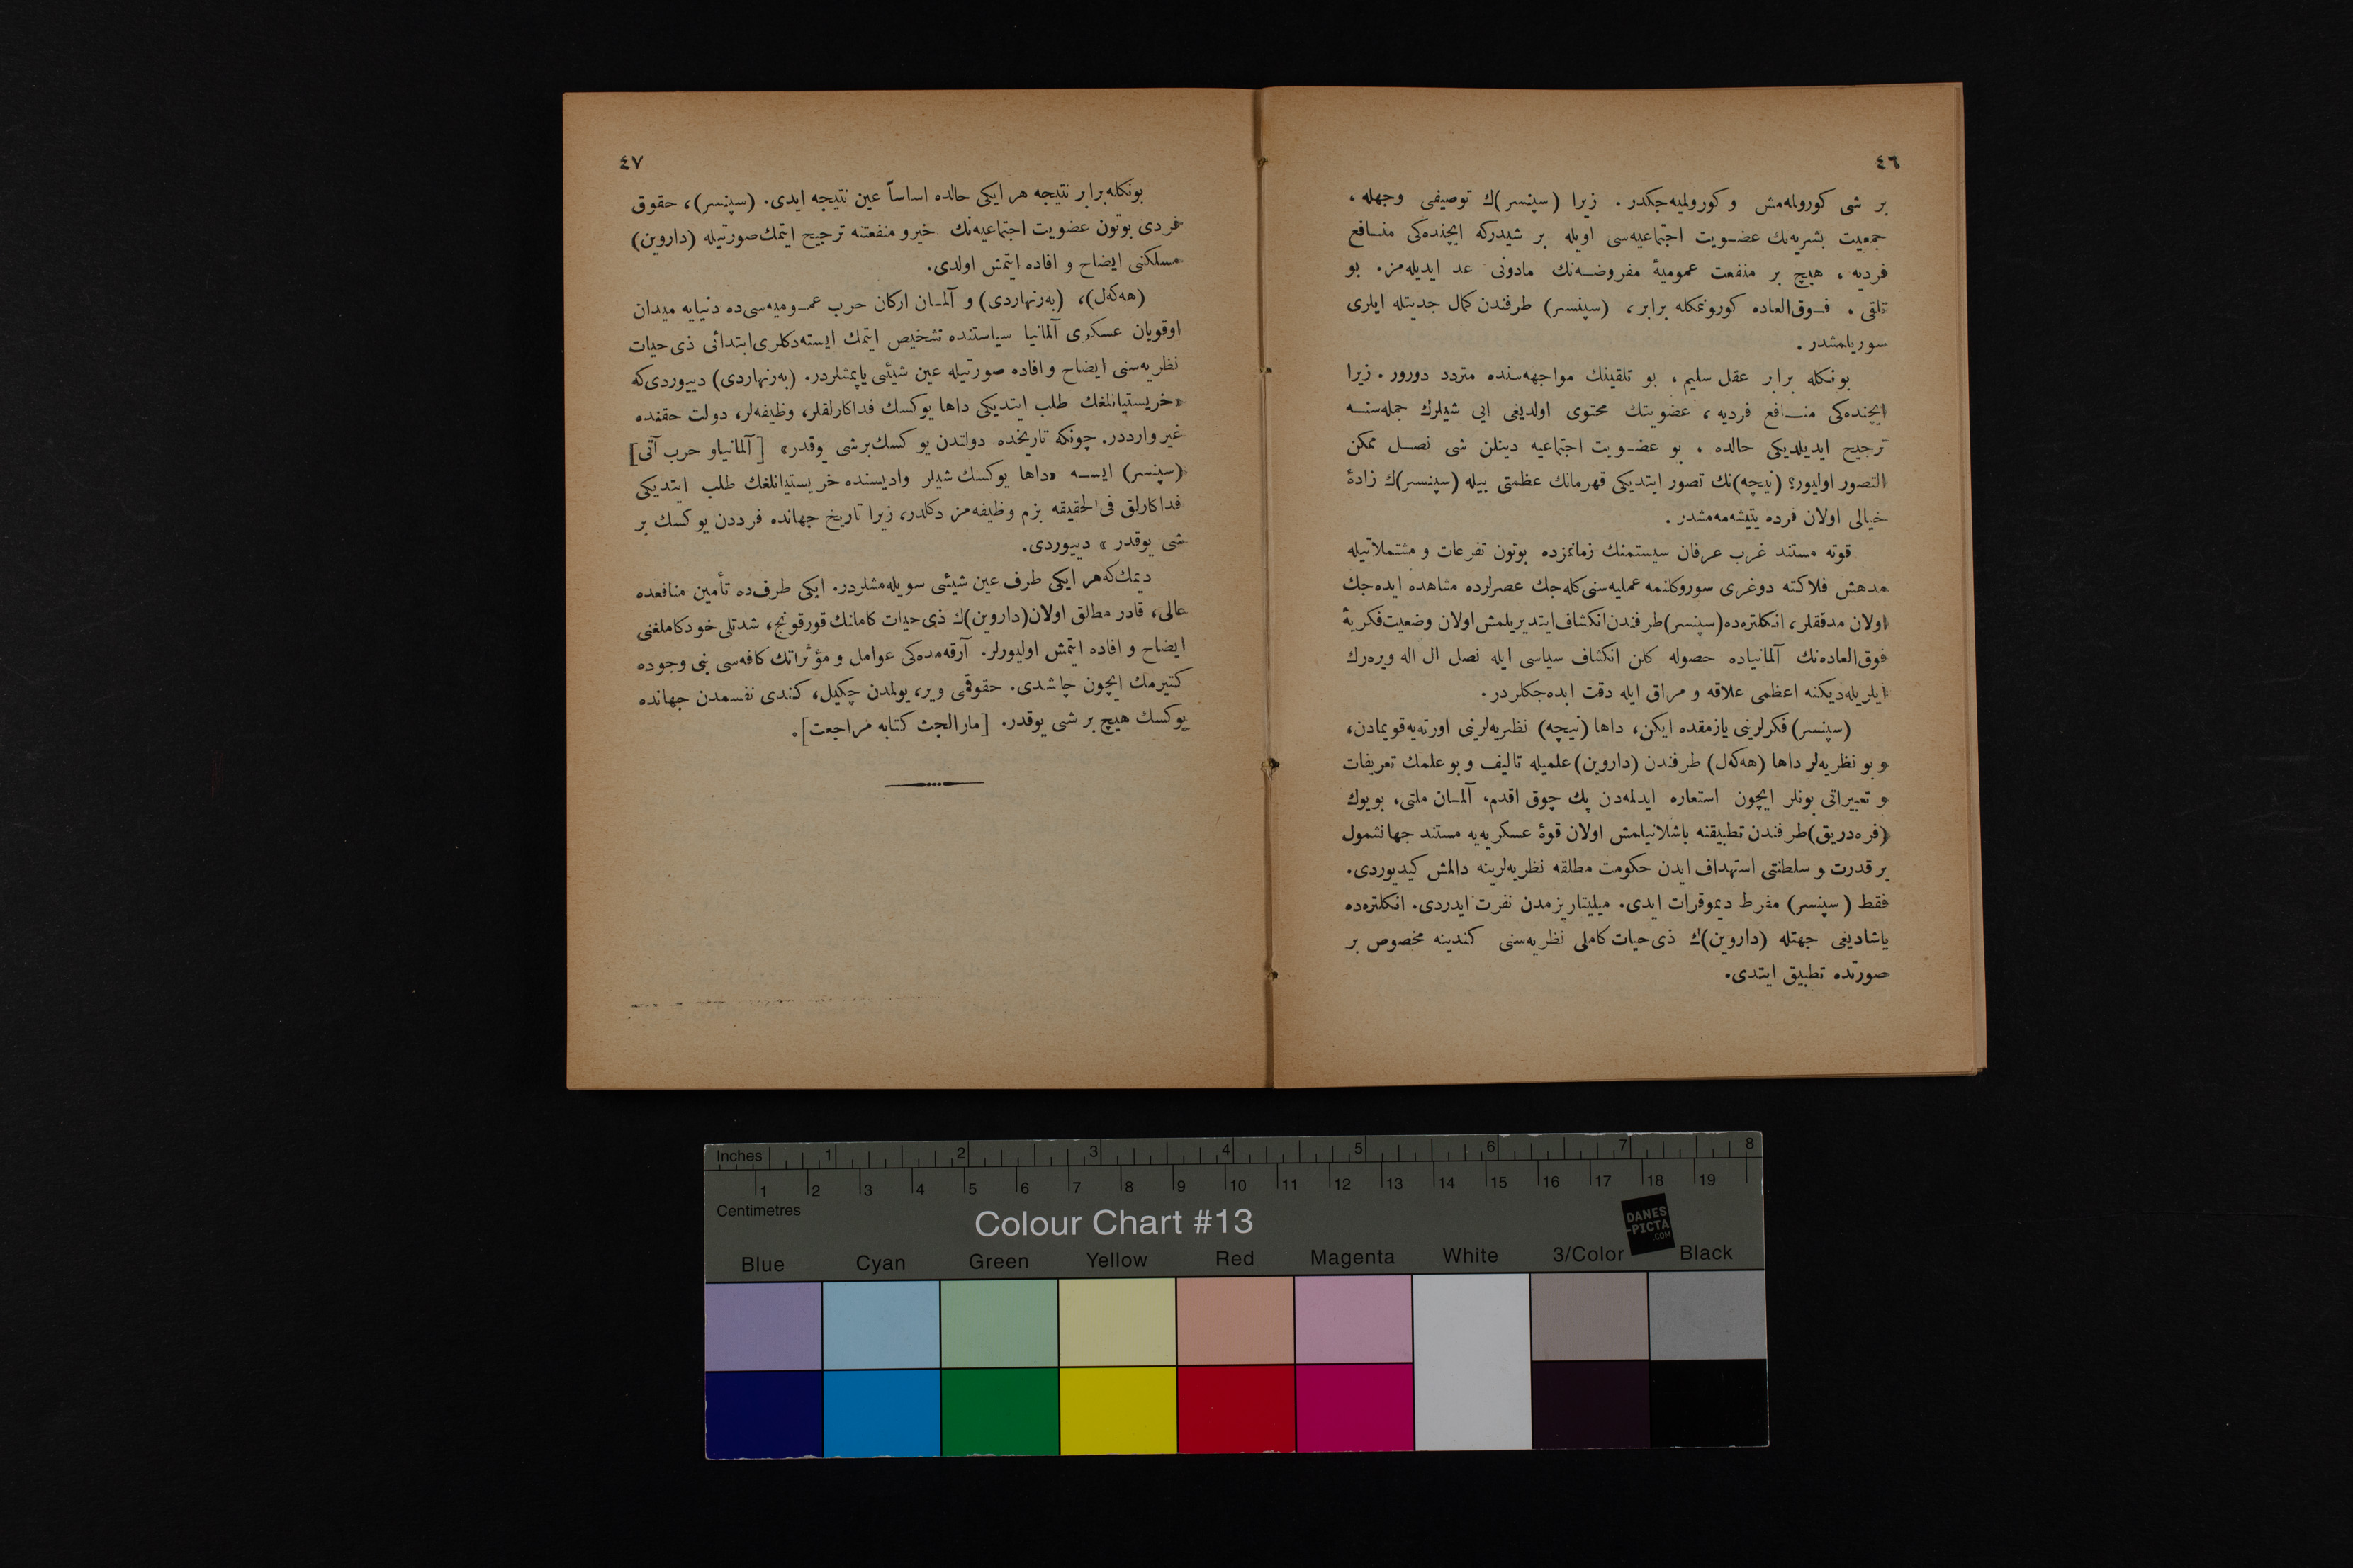 ٤٦
بر شی كورولمه‌مش و كورولمیه‌جكدر. زیرا (سپنسر)ك توصیفی وجهله،
جمعیت بشریه‌نك عضویت اجتماعیه‌سی اویله بر شیدركه ایچنده‌كی منافع
فردیه، هیچ بر منفعت عمومیۀ مفروضه‌نك مادونی عد ایدیله‌مز. بو
تلقی، فوق‌العاده كورونمكله برابر، (سپنسر) طرفندن كمال جدیتله ایلری
سوریلمشدر.
بونكله برابر عقل سلیم، بو تلقینك مواجهه‌سنده متردد دورور. زیرا
ایچنده‌كی منافع فردیه، عضویتك محتوی اولدیغی ایی شیلرك جمله‌سنه
ترجیح ایدیلدیكی حالده، بو عضویت اجتماعیه دینلن شی نصل ممكن
التصور اولیور؟ (نیچه)نك تصور ایتدیكی قهرمانك عظمتی بیله (سپنسر)ك زادۀ
خیالی اولان فرده یتیشه‌مه‌مشدر.
قوته مستند غرب عرفان سیستمنك زمانمزده بوتون تفرعات و مشتملاتیله
مدهش فلاكته دوغری سوروكلنمه عملیه‌سنی كله‌جك عصرلرده مشاهده ایده‌جك
اولان مدققلر، انكلتره‌ده (سپنسر) طرفندن انكشاف ایتدیریلمش اولان وضعیت فكریۀ
فوق‌العاده‌نك آلمانیاده حصوله كلن انكشاف سیاسی ایله نصل ال اله ویره‌رك
ایلریله‌دیكنه اعظمی علاقه و مراق ایله دقت ایده‌جكلردر.
(سپنسر) فكرلرینی یازمقده ایكن، داها (نیچه) نظریه‌لرینی اورته‌یه قویمادن،
و بو نظریه‌لر داها (هه‌كه‌ل) طرفندن (داروین) علمیله تالیف و بو علمك تعریفات
و تعبیراتی بونلر ایچون استعاره ایدلمه‌دن پك چوق اقدم، آلمان ملتی، بویوك
(فره‌دریق) طرفندن تطبیقنه باشلانیلمش اولان قوۀ عسكریه‌یه مستند جهانشمول
بر قدرت و سلطنتی استهداف ایدن حكومت مطلقه نظریه‌لرینه دالمش كیدیوردی.
فقط (سپنسر) مفرط دیموقرات ایدی. میلیتاریزمدن نفرت ایدردی. انكلتره‌ده
یاشادیغی جهتله (داروین)ك ذی‌حیات كاملی نظریه‌سنی كندینه مخصوص بر
صورتده تطبیق ایتدی.
٤٧
بونكله برابر نتیجه هر ایكی حالده اساساً عین نتیجه ایدی. (سپنسر)، حقوق
فردی بوتون عضویت اجتماعیه‌نك خیر و منفعتنه ترجیح ایتمك صورتیله (داروین)
مسلكنی ایضاح و افاده ایتمش اولدی.
(هه‌كه‌ل)، (به‌رنهاردی) و آلمان اركان حرب عمومیه‌سی‌ده دنیایه میدان
اوقویان عسكری آلمانیا سیاستنده تشخیص ایتمك ایسته‌دكلری ابتدائی ذی حیات
نظریه‌سنی ایضاح و افاده صورتیله عین شیئی یاپمشلردر. (به‌رنهاردی) دییوردی‌كه
«خریستیانلغك طلب ایتدیكی داها یوكسك فداكارلقلر، وظیفه‌لر، دولت حقنده
غیر وارددر. چونكه تاریخده دولتدن یوكسك بر شی یوقدر» [آلمانیا و حرب آتی]
(سپنسر) ایسه «داها یوكسك شیلر وادیسنده خریستیانلغك طلب ایتدیكی
فداكارلق فی الحقیقه بزم وظیفه‌مز دكلدر، زیرا تاریخ جهانده فرددن یوكسك بر
شی یوقدر» دییوردی.
دیمك‌كه هر ایكی طرف عین شیئی سویله‌مشلردر. ایكی طرف‌ده تأمین منافعده
عالی، قادر مطلق اولان (داروین)ك ذی حیات كاملنك قورقونج، شدتلی خودكاملغنی
ایضاح و افاده ایتمش اولیورلر. آرقه‌مده‌كی عوامل و مؤثراتك كافه‌سی بنی وجوده
كتیرمك ایچون چالشدی. حقوقمی ویر، یولمدن چكیل، كندی نفسمدن جهانده
یوكسك هیچ بر شی یوقدر. [مارالبحث كتابه مراجعت].
Inches 1 2 3 4 5 6 7 8
1 2 3 4 5 6 7 8 9 10 11 12 13 14 15 16 17 18 19
Centimetres
Colour Chart #13
DANES
-PICTA
.COM
Blue Cyan Green Yellow Red Magenta White 3/Color Black